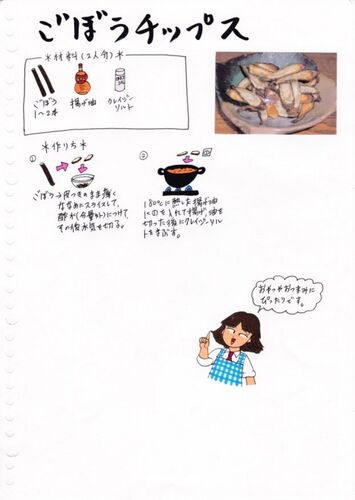 ごぼうチップス
*材料(2人分)*
ごぼう
1〜2本
揚げ油
クレイジー
ソルト
*作りち*
①
ごぼう→皮つきのまま薄く
ななめにスライスして、
酢水(分量外)につけて
その後水気を切る。
②
180℃に熱した揚げ油
に①を入れて揚げ、油を
切った後にクレイジーソル
トをまぶす。
おやつやおつまみに
ぴったりです。